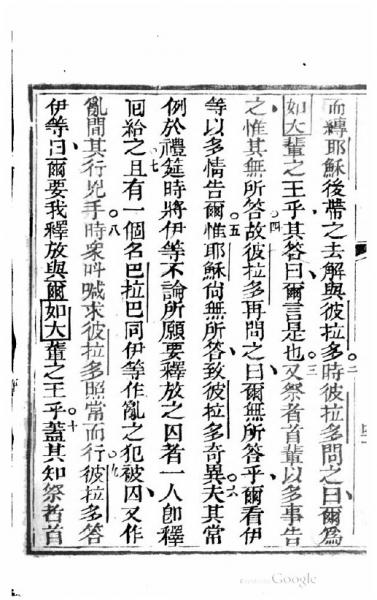 而縛耶穌後帶之去解與彼拉多。二時彼拉多問之曰爾爲
如大輩之王乎其答曰爾言是也。三又祭者首輩以多事告
之惟其無所答。四故彼拉多再問之曰爾無所答乎爾看伊
等以多情告爾。五惟耶穌尙無所答致彼拉多奇異。六夫其常
例於禮筵時將伊等不論所願要釋放之囚者一人卽釋
囘給之。七且有一個名巴拉巴同伊等作亂之犯被囚又作
亂間其行兇手。八時眾呌喊求彼拉多照常而行。九彼拉多答
伊等曰爾要我釋放與爾如大輩之王乎。十蓋其知祭者首
Google